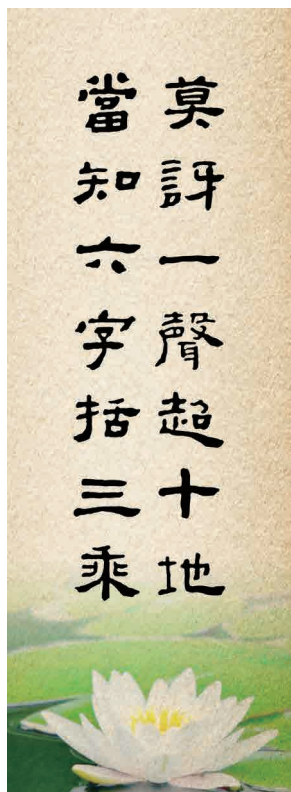 莫訝一聲超十地
當知六字括三乘